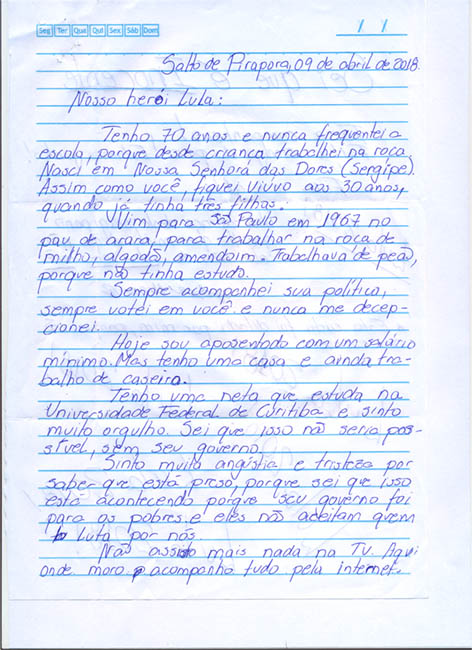 Seg Ter Qua Qui Sex Sáb Dom
/ /
Salto de Pirapora, 09 de abril de 2018.
Nosso herói Lula:
Tenho 70 anos e nunca frequentei a
escola, porque desde criança trabalhei na roça.
Nasci em Nossa Senhora das Dores (Sergipe).
Assim como você, fiquei viúvo aos 30 anos,
quando já tinha três filhas.
Vim para São Paulo em 1967 no
pau de arara, para trabalhar na roça de
milho, algodão, amendoim. Trabalhava de peão,
porque não tinha estudo.
Sempre acompanhei sua política,
sempre votei em você e nunca me decep-
cionei.
Hoje sou aposentado com um salário
mínimo. Mas tenho uma casa e ainda tra-
balho de caseiro.
Tenho uma neta que estuda na
Universidade Federal de Curitiba e sinto
muito orgulho. Sei que isso não seria pos-
sível, sem seu governo.
Sinto muita angústia e tristeza por
saber que está preso, porque sei que isso
está acontecendo porque seu governo foi
para os pobres e eles não aceitam quem
luta por nós.
Não assisto mais nada na TV. Aqui
onde moro acompanho tudo pela internet.